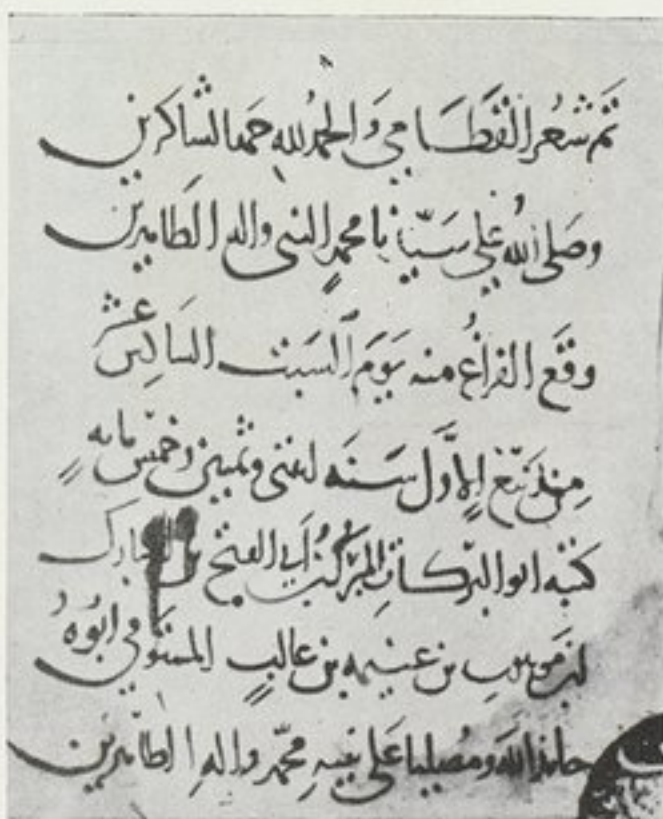 تم شعر القطامي والحمد لله حمد الشاكرين
وصلى الله على سيدنا محمد النبي واله الطاهرين
وقع الفراغ منه يوم السبت السادس عشر
من ربيع الأول سنة اثنتى وثمنين وخمس مايه
كتبه ابو البركات المبارك بن أبي الفتح بن المبارك
بن موهوب بن غنيمه بن غالب المستوفي ابوه
حامدا لله ومصليا على نبيه محمد واله الطاهرين